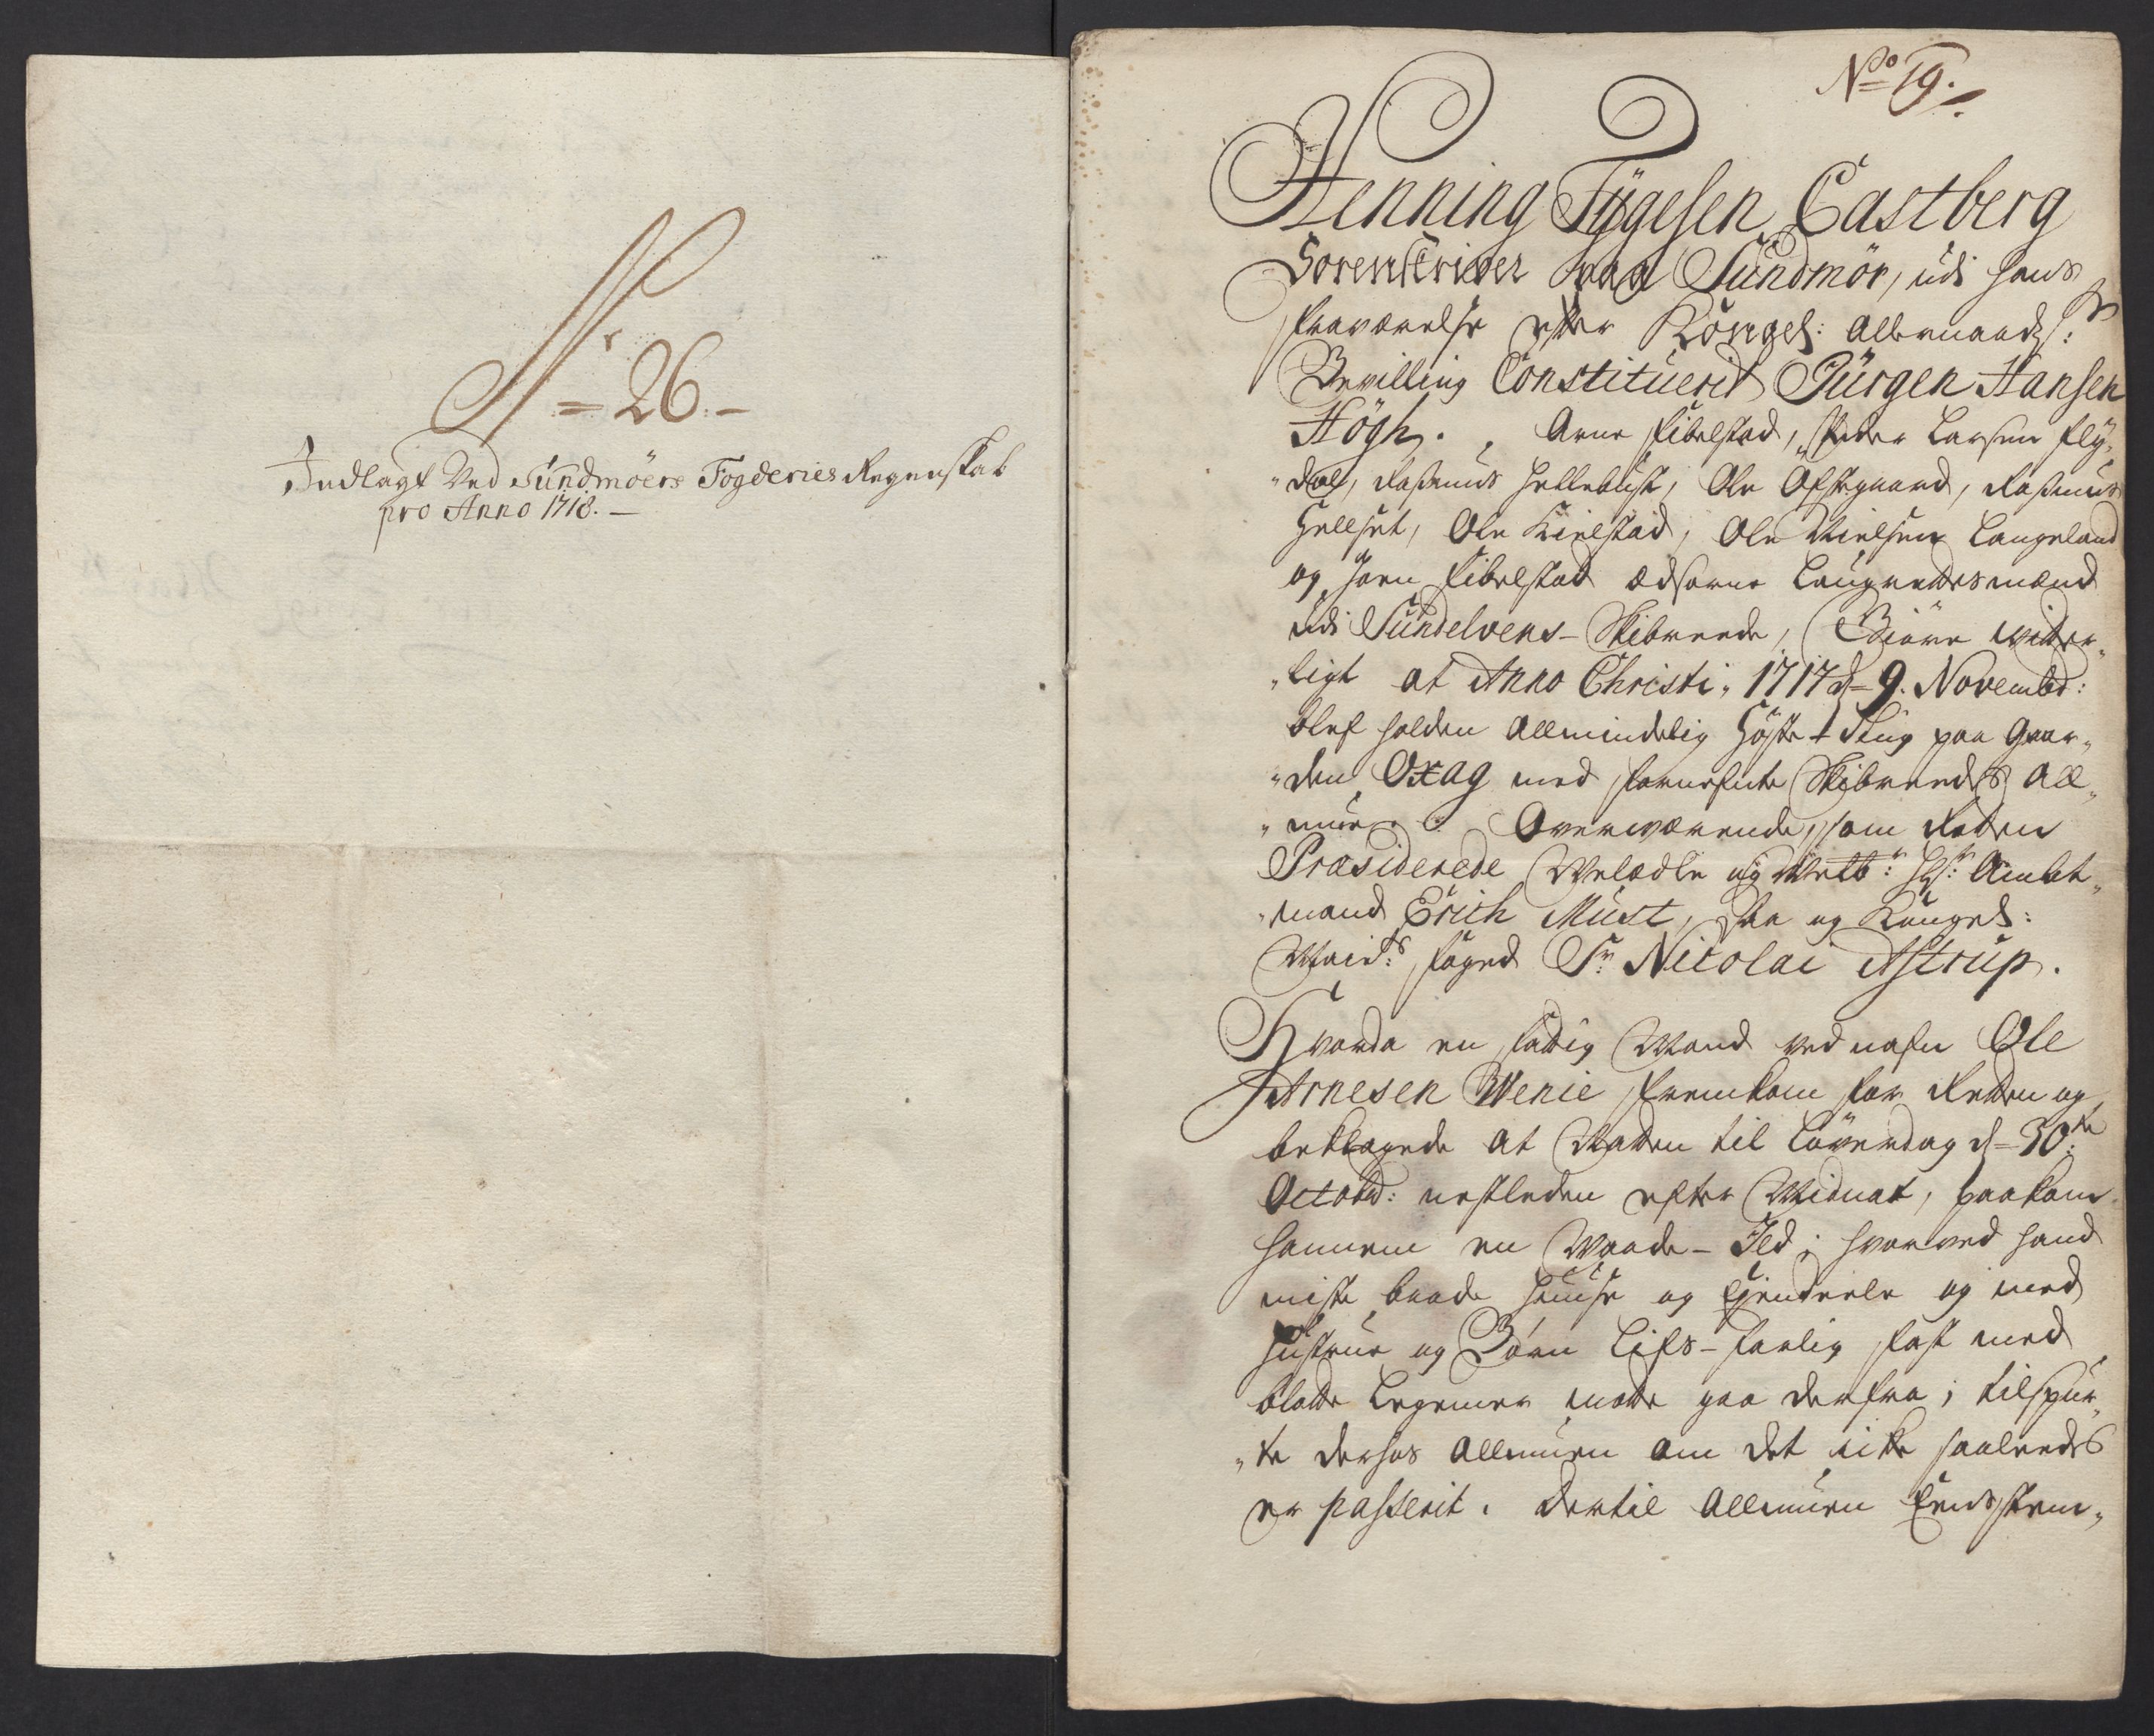 No 26.
Indlagt Ved Sundmöers Fogderies Regenskab
pro Anno 1718.
No 19.
Henning Tÿgesen Castberg
Sorenskriver paa Sundmör, udi hans
fraværelse efter Kongel: Allernaads:
Bevilling Constituerit Jürgen Hansen
Högh. Arne Fibelstad, Peder Larsen Flÿ„
„dal, Rasmus Hellebust, Ole Opstgaard, Rasmus
Hellset, Ole Kielstad, Ole Nielsen Langeland
og Joen Fibelstad Edsorne Laugrettesmænd
udi Sundelvens-Skibrede, Giöre witter„
„ligt at Anno Christi 1717 d= 9. Novembr:
blef holden Almindelig Höste-Ting paa Gaar„
„den Oxag med fornefnte Skibredes All„
„mue. Overværende, som Retten
Præsiderede Welædle og Welb: Hr: Ambt„
„mand Erich Must, Saa og Kongel:
Mait: Foged Sr Nicolai Astrup.
Hvorda en fattig Mand ved nafn Ole
Arnesen Wenie fremkom for Retten og
beklagede at Natten til Löverdag d= 30te
Octobr: nestleden efter Midnat, paakom
hannem en Waade-Ild; hvorved hand
miste baade Huuse og Ejendeele og med
Hustrue og Börn Lifs-farlig fast med
blotte Legemer motte gaa derfra; tilspur„
„te derhos Allmuen om det icke saaleedes
er passerit. Dertil Allmuen Eensstem„